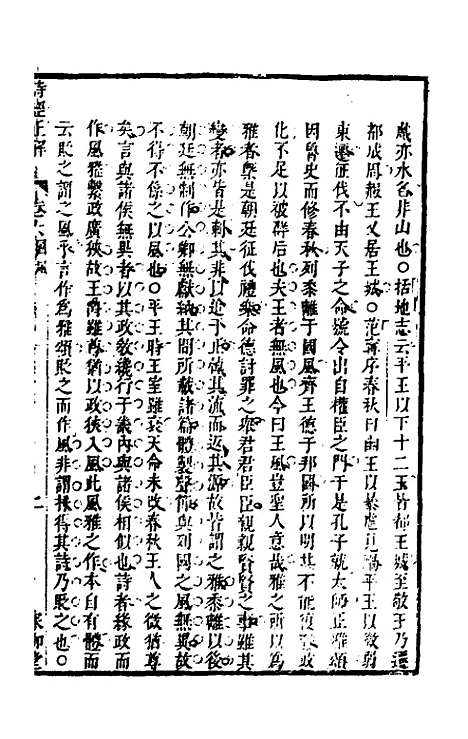 戲亦水名非山也〇括地志云平王以下十二王皆都王城至敬王乃遷
都成周赧王又居王城〇范甯序春秋曰幽王以暴虐見禍平王以微弱
東遷征伐不由天子之命號令出自權臣之門于是孔子就太師正雅頌
因魯史而修春秋列黍離于國風齊王德于邦國所以明其不能復雅政
化不足以被群后也夫王者無風也今曰王風豈聖人意哉雅之所以為
雅者槩是朝廷征伐禮樂命德討罪之 君君臣臣親親賢賢之事雖其
變者亦皆是 其非以 于正 其流而返其源故皆謂之雅黍離以後
朝廷無制作公卿無獻納其間所載諸篇體製聲節與列國之風無異故
不得不係之以風也〇平王時王室雖衰天命未改春秋王人之微猶尊
矣言與諸侯無異者以其政教纔行于畿內與諸侯相似也詩者緣政而
作風雅繫政廣狹故王爵雖尊猶以政狹入風此風雅之作本自有體而
云貶之謂之風乎言作為雅頌貶之而作風非謂採得其詩乃貶之也〇
詩經正解
卷六國風
二